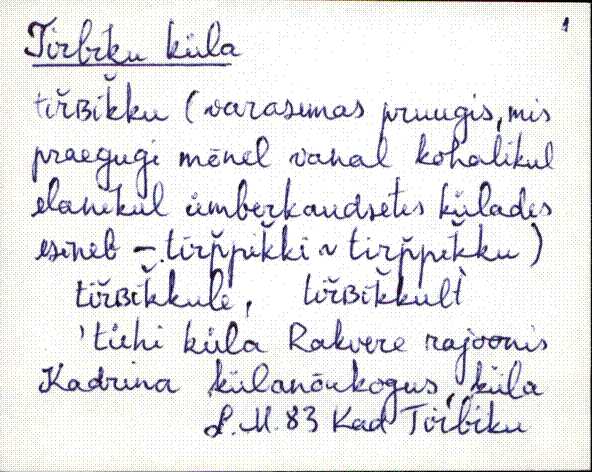 1
Tirbiku küla
tiř̌ʙik̆ku (varasemas pruugis, mis
praegugi mõnel vanal kohalikul
elanikul ümberkaudsetes külades
esineb – tirp̆pik̆ki ~ tirp̆pik̆ku)
tiř̌ʙik̆kule, tiř̌ʙik̆kult̀
'tühi küla Rakvere rajoonis
Kadrina külanõukogus, küla
L.M. 83 Kad Tirbiku